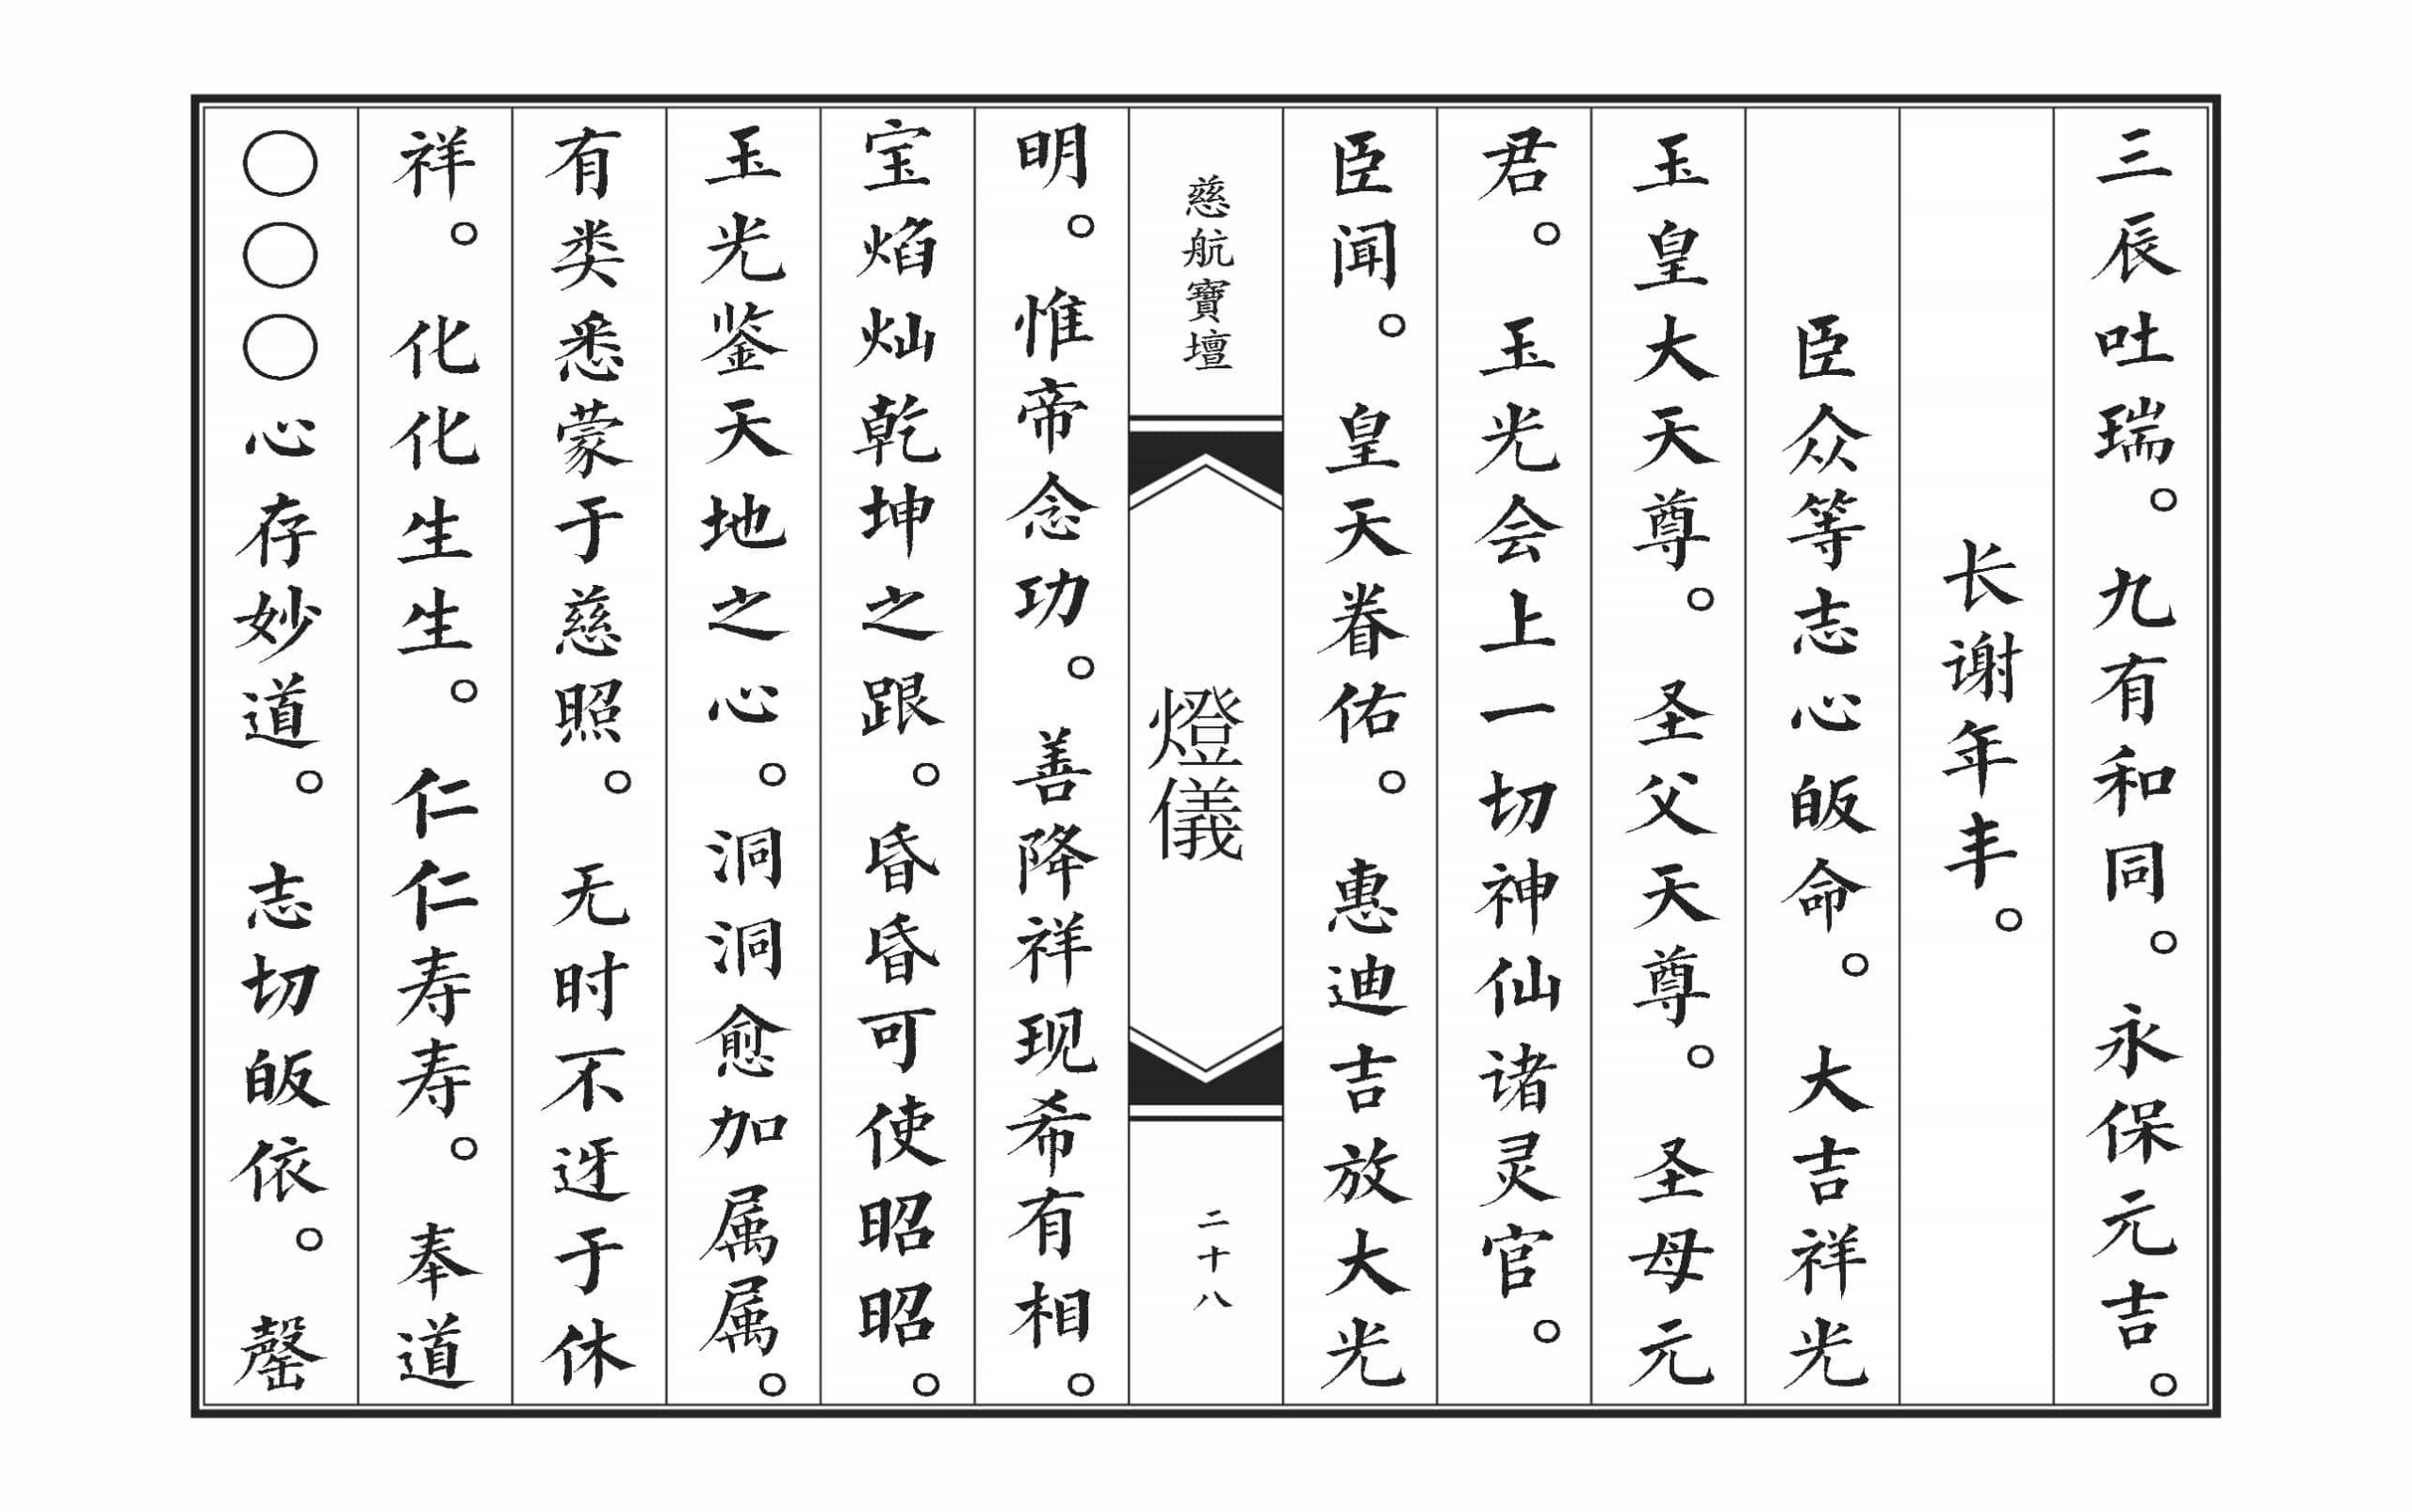 三辰吐瑞。九有和同。永保元吉。
长谢年丰。
臣众等志心皈命。大吉祥光
玉皇大天尊。圣父天尊。圣母元
君。玉光会上一切神仙诸灵官。
臣闻。皇天眷佑。惠迪吉放大光
慈航寶壇
燈儀
二十八
明。惟帝念功。善降祥现希有相。
宝焰灿乾坤之跟。昏昏可使昭昭。
玉光鉴天地之心。洞洞愈加属属。
有类悉蒙于慈照。无时不迓于休
祥。化化生生。仁仁寿寿。奉道
○○○心存妙道。志切皈依。罄